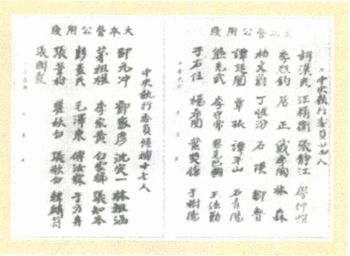 大本營公用箋
中央執行委員廿四人
胡漢民 汪精衛 張靜江 廖仲愷
李烈鈞 居正 戴季陶 林森
柏文蔚 丁惟汾 石瑛 鄒魯
譚延闓 覃振 譚平山 石青陽
熊克武 李守常 恩克巴圖 王法勤
于右任 楊希閔 葉楚傖 于樹德
大本營公用箋
中央執行委員候補十七人
邵元冲 鄧家彥 沈定一 林祖涵
茅祖權 李宗黃 白雲梯 張知本
彭素民 毛澤東 傅汝霖 于方舟
張葦村 瞿秋白 張秋白 韓麟符
張國燾